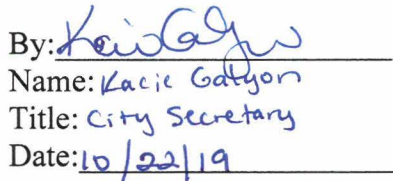 By: Kacie Galyon
Name: Kacie Galyon
Title: City Secretary
Date: 10/22/19